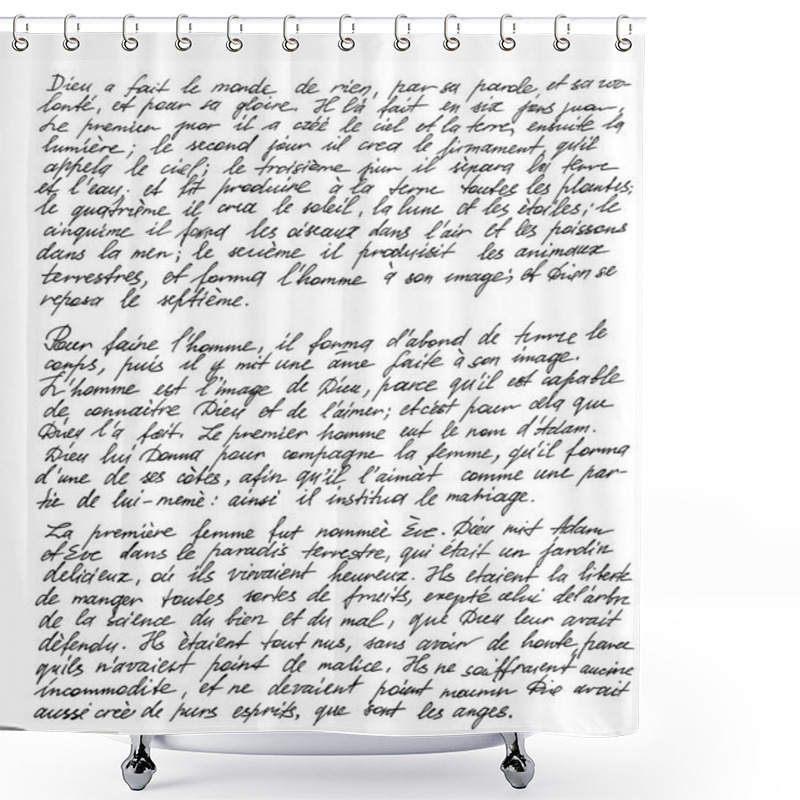 Dieu a fait le monde de rien, par sa parole, et sa vo-
lonté, et pour sa gloire. Il l'a fait en six jors
Le premier jror il a créé le ciel et la terre, ensuite la
lumière; le second jour il crea le firmament, qu'il
appela le ciel; le troisième jiur il sèpara la terre
et l'eau. et fit produire à la terre toutes les plantes;
le quatrième il crea le soleil, la lune et les ètoiles; le
cinquime il les oiseaux dans l'air et les poissons
dans la mer; le il produisit les animaux
terrestres, et forma l'homme à son image; et Dieu se
reposa le septième.
Pour faire l'homme, il forma d'abord de terre le
corps, puis il y mit une âme faite à son image.
L'homme est l'image de Dieu, parce qu'il est capable
de connaitre Dieu et de l'aimer; et c'est pour cela que
Dieu l'a fait. Le premier homme eut le nom d'Adam.
Dieu lui Donna pour compagne la femme, qu'il forma
d'une de ses côtes, afin qu'il l'aimàt comme une par-
tie de lui-memè: ainsi il institua le mariage.
La première femme fut nommèè Ève. Dieu mit Adam
et Eve dans le paradis terrestre, qui était un jardin
delicieux, où ils vivaient heureux. Ils etaient la liberte
de manger toutes sortes de fruits, exepté celui de l'arbre
de la science du bien et du mal, que Dieu leur avait
dèfendu. Ils ètaient tout nus, sans avoir de honte, parce
qu'ils n'avaient point de malice. Ils ne souffraient aucune
incommodite, et ne devaient point mourir Dieu avait
aussi crèè de purs esprits, que sont les anges.